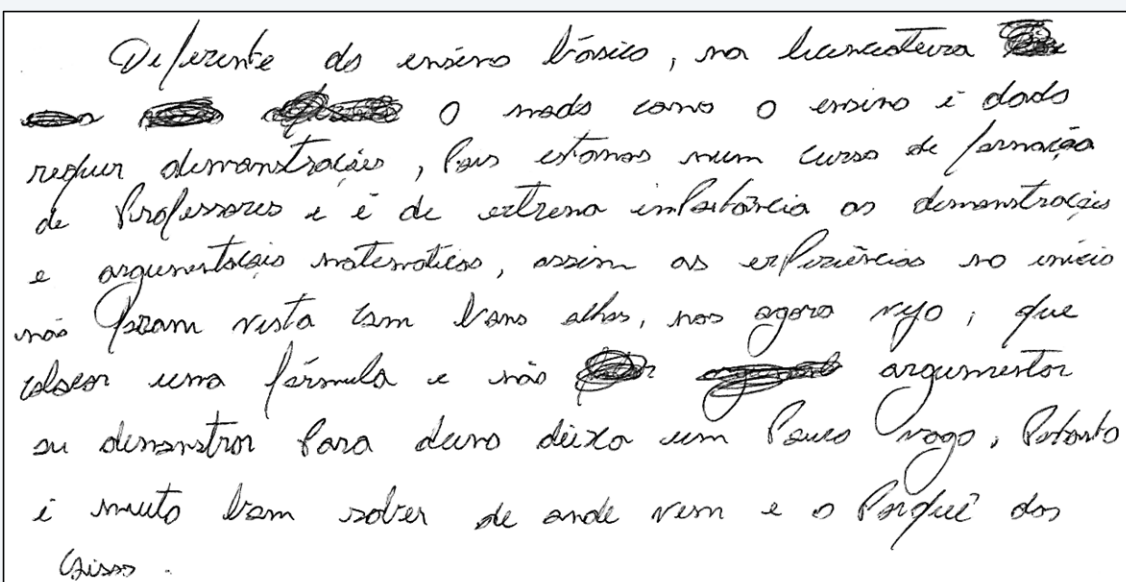 Deferente do ensino básico, na licenciatura
O modo como o ensino é dado
requer demonstrações, Pois estamos num curso de formação
de Professores e é de extrema importância as demonstrações
e argumentações matemáticas, assim as experiências no início
não foram vista com bons olhos, mas agora vejo, que
colocar uma fórmula e não argumentar
ou demonstrar Para aluno deixa um Pouco vago, Portanto
é muito bom saber de onde vem e o Porquê das
coisas.